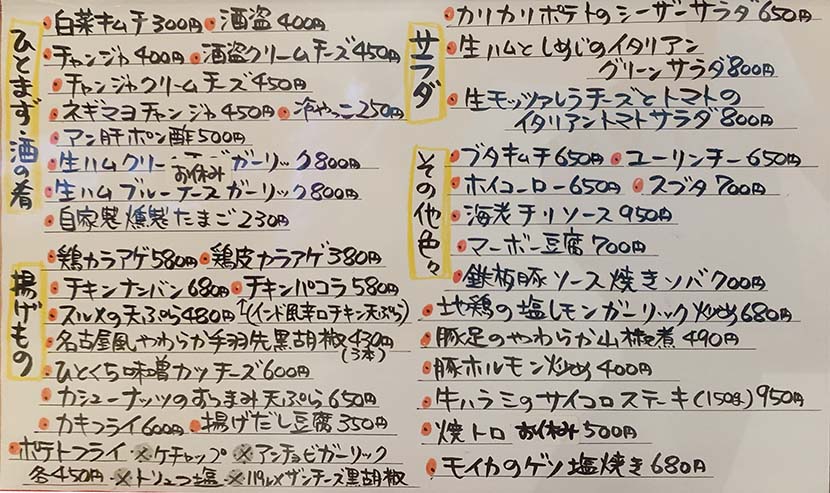 ひとまず酒の肴
白菜キムチ300円 酒盗400円
チャンジャ400円 酒盗クリームチーズ450円
チャンジャクリームチーズ450円
ネギマヨチャンジャ450円 冷やっこ250円
アン肝ポン酢500円
生ハムクリー お休み ガーリック800円
生ハムブルーチーズガーリック800円
自家製燻製たまご230円
揚げもの
鶏カラアゲ580円 鶏皮カラアゲ380円
チキンナンバン680円 チキンパコラ580円
スルメの天ぷら480円 ↑(インド風辛口チキン天ぷら)
名古屋風やわらか手羽先黒胡椒430円
(3本)
ひとくち味噌カツチーズ600円
カシューナッツのおつまみ天ぷら650円
カキフライ600円 揚げだし豆腐350円
ポテトフライ ※ケチャップ ※アンチョビガーリック
各450円 ※トリュフ塩 ※パルメザンチーズ黒胡椒
サラダ
カリカリポテトのシーザーサラダ650円
生ハムとしめじのイタリアン
グリーンサラダ800円
生モッツァレラチーズとトマトの
イタリアントマトサラダ800円
その他色々
ブタキムチ650円 ユーリンチー650円
ホイコーロー650円 スブタ700円
海老チリソース950円
マーボー豆腐700円
鉄板豚ソース焼きソバ700円
地鶏の塩レモンガーリック炒め680円
豚足のやわらか山椒煮490円
豚ホルモン炒め400円
牛ハラミのサイコロステーキ(150g)950円
焼トロ お休み 500円
モイカのゲソ塩焼き680円